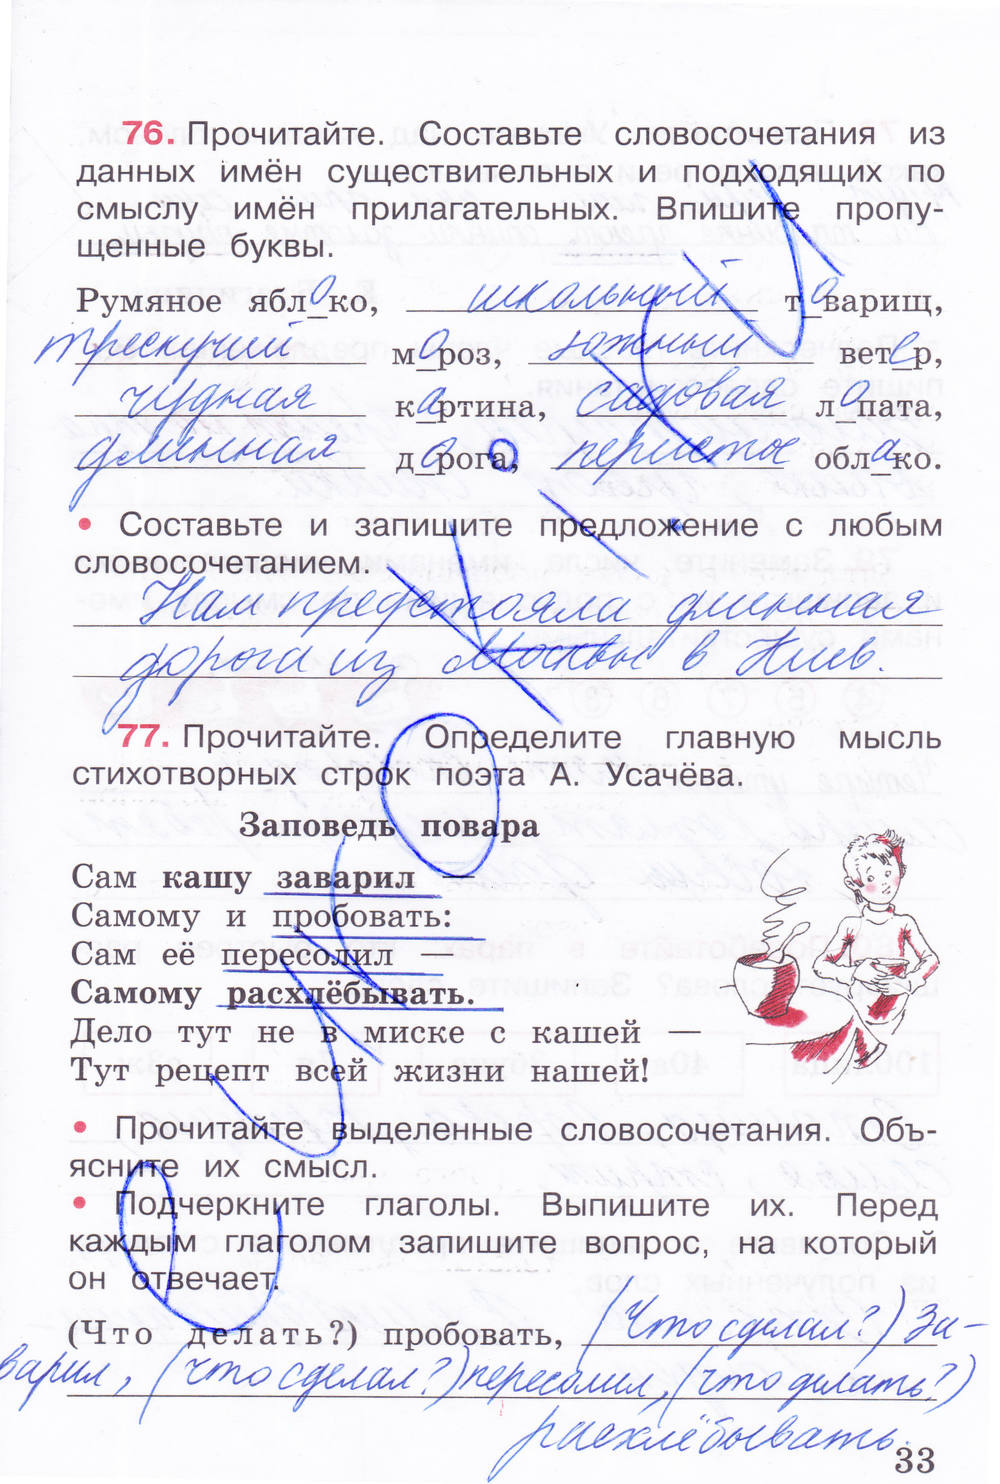 76. Прочитайте. Составьте словосочетания из
данных имён существительных и подходящих по
смыслу имён прилагательных. Впишите пропу-
щенные буквы.
Румяное яблоко, школьный товарищ,
трескучий мороз, южный ветер,
чудная картина, садовая лопата,
длинная дорога, перистое облако.
• Составьте и запишите предложение с любым
словосочетанием.
Нам предстояла длинная
дорога из Москвы в Киев.
77. Прочитайте. Определите главную мысль
стихотворных строк поэта А. Усачёва.
Заповедь повара
Сам кашу заварил —
Самому и пробовать:
Сам её пересолил —
Самому расхлёбывать.
Дело тут не в миске с кашей —
Тут рецепт всей жизни нашей!
• Прочитайте выделенные словосочетания. Объ-
ясните их смысл.
• Подчеркните глаголы. Выпишите их. Перед
каждым глаголом запишите вопрос, на который
он отвечает.
(Что делать?) пробовать, (Что сделал?) За-
варил, (что сделал?) пересолил, (что делать?)
расхлёбывать.
33